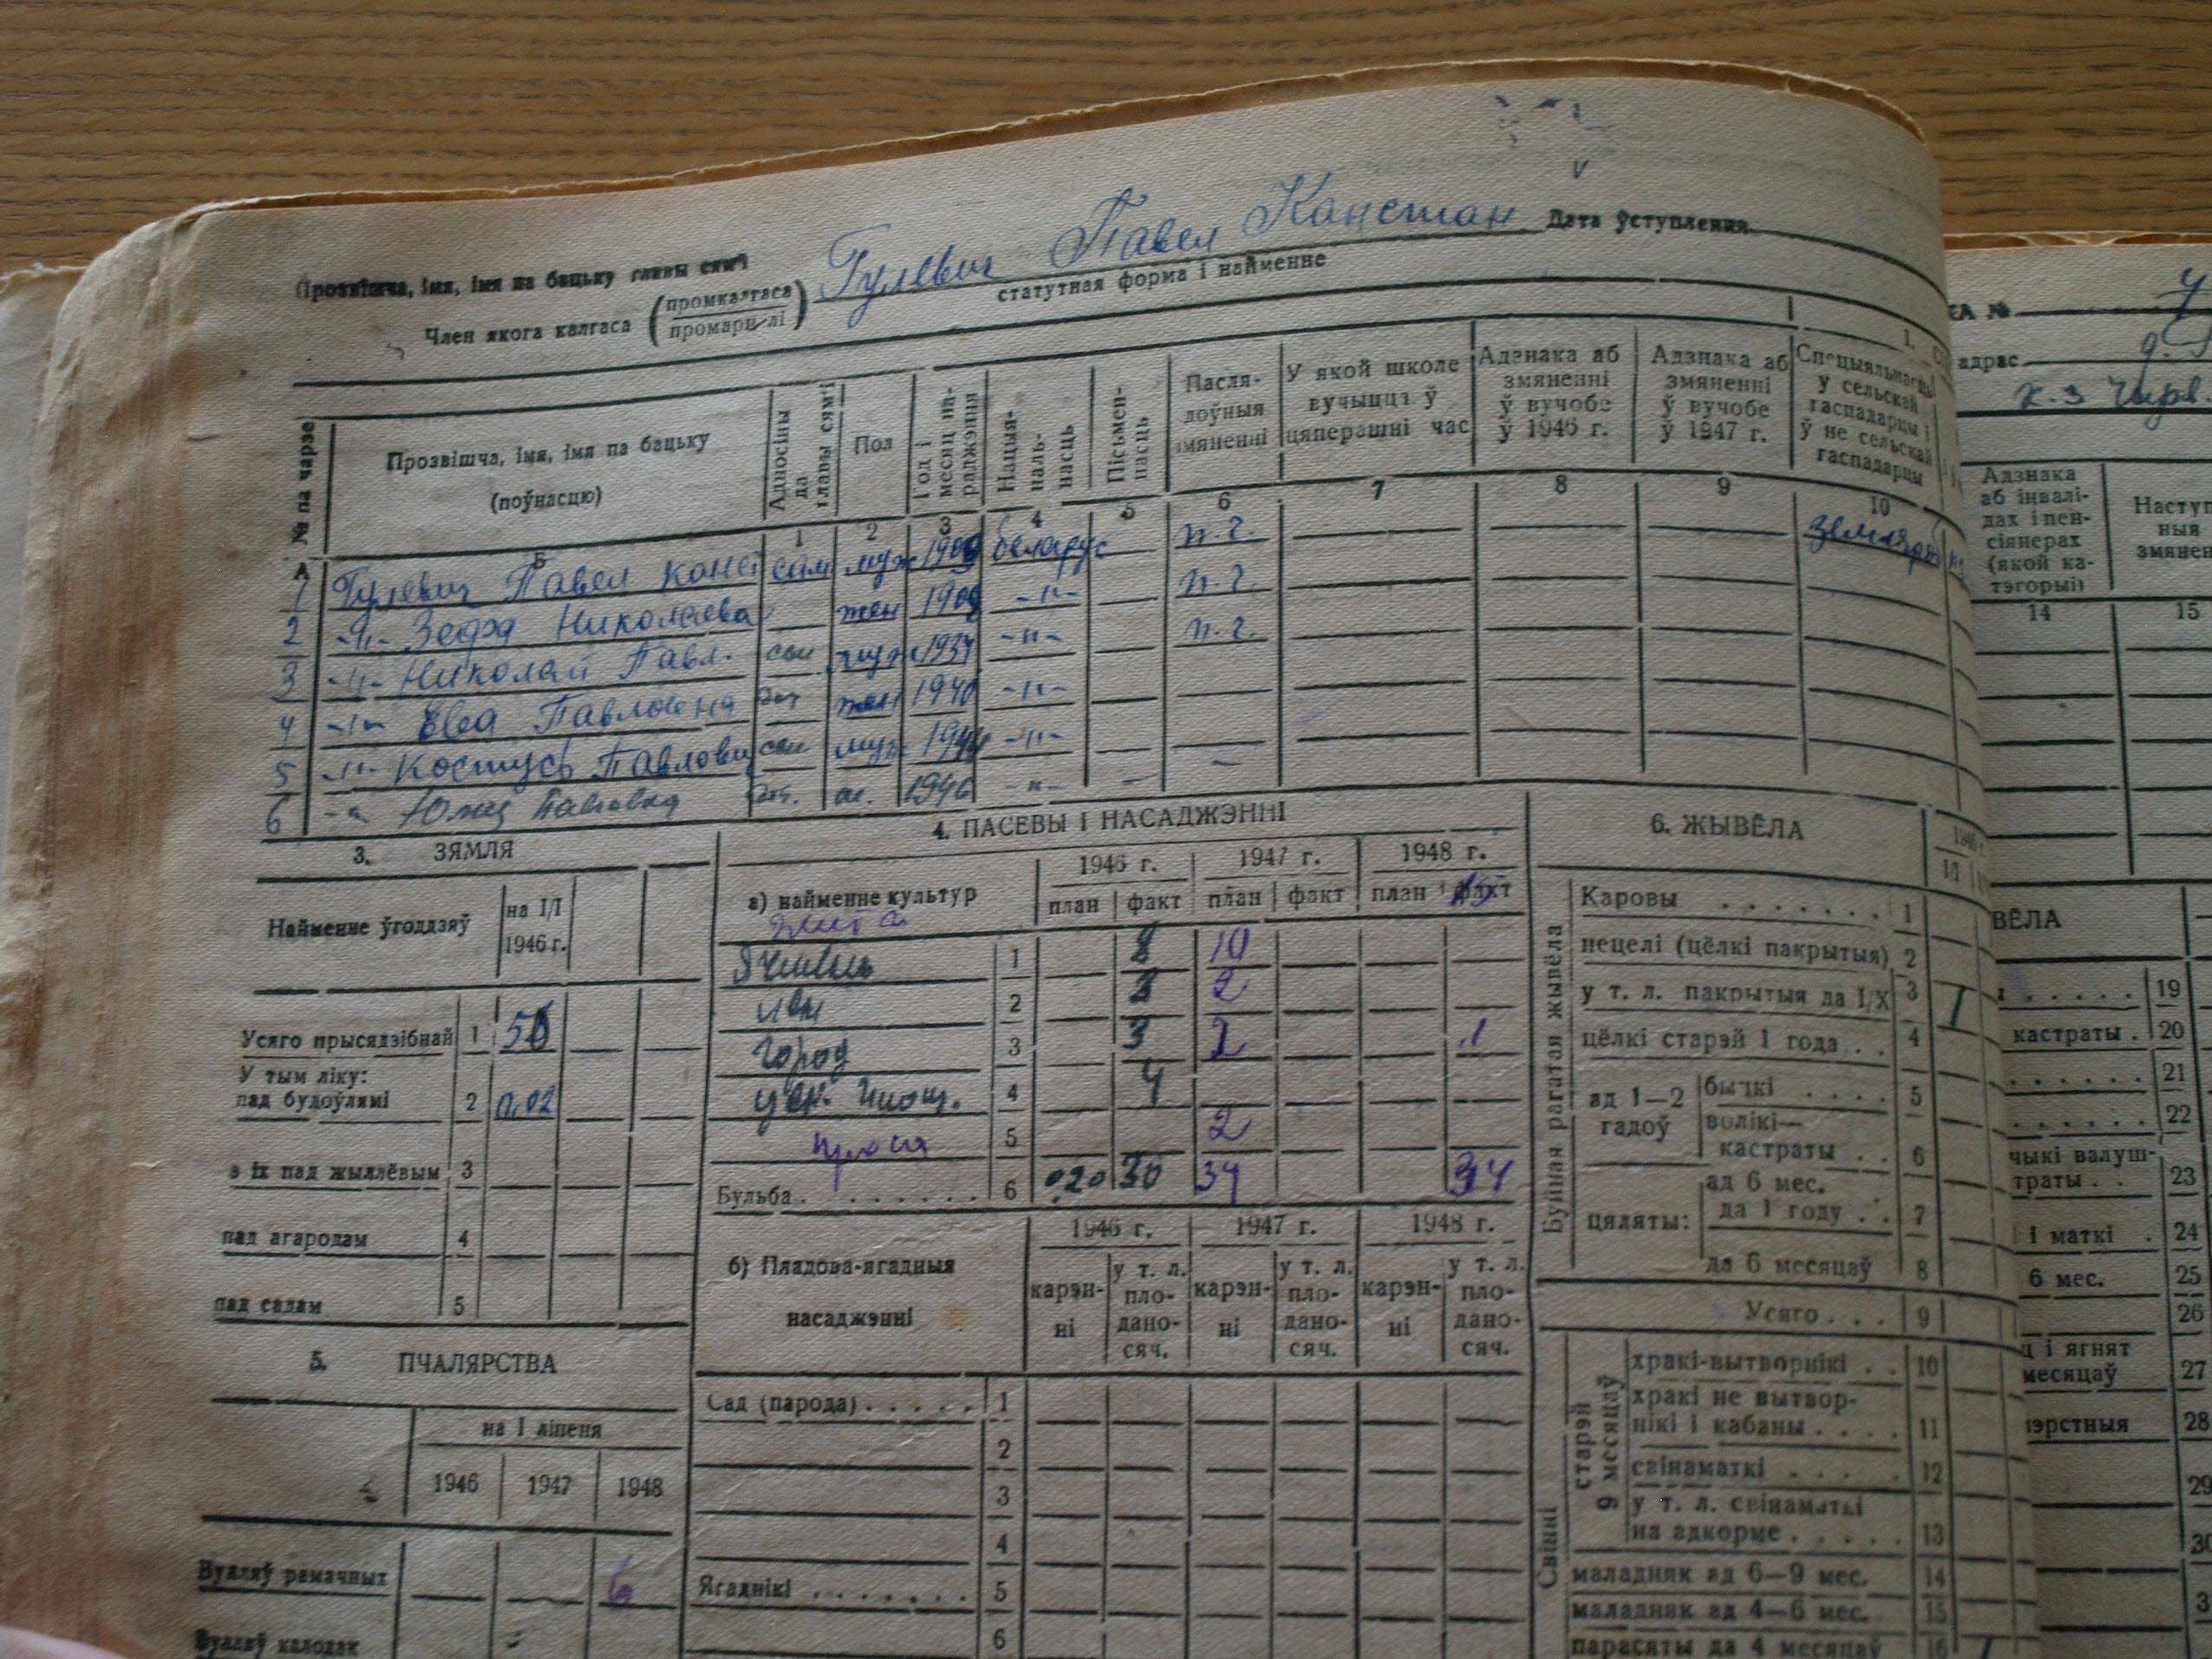 Прозвішча, імя, імя па бацьку главы сям'і Гулевич Павел Констан Дата ўступлення
Член якога калгаса (промкалгаса промарцелі) статутная форма і найменне
№ па чарзе
Прозвішча, імя, імя па бацьку (поўнасцю)
Адносіны да главы сям'і
Пол
Год і месяц нараджэння
Нацыянальнасць
Пісьменнасць
Пасля-
доўныя
змяненні
У якой школе
вучыцца ў
цяперашні час
Адзнака аб
змяненні
ў вучобе
ў 1946 г.
Адзнака аб
змяненні
ў вучобе
ў 1947 г.
Спецыяльнасць
у сельскай
гаспадарцы і
ў не сельскай
гаспадарцы
А Б 1 2 3 4 5 6 7 8 9 10
1 Гулевич Павел Конст сам муж 1909 беларус п.г.
2 -"- Зефа Николаева жен 1909 -"- п.г.
3 -"- Николай Павл. сын муж 1937 -"- п.г.
4 -"- Ева Павловна доч жен 1940 -"-
5 -"- Костусь Павлович сын муж 1944 -"-
6 -"- Павловна доч. 1946 -"- — —
3. ЗЯМЛЯ
Найменне ўгоддзяў
на I/I
1946 г.
Усяго прысядзібнай 1
У тым ліку:
пад будоўлямі 2 0,02
з іх пад жыллёвым 3
пад агародам 4
пад садам 5
5. ПЧАЛЯРСТВА
на I ліпеня
1946 1947 1948
Вуллёў рамачных 6
Вуллёў калодак
4. ПАСЕВЫ І НАСАДЖЭННІ
а) найменне культур
1946 г. 1947 г. 1948 г.
план факт план факт план факт
жита
Ячмень 1 8 10
лён 2 3 2
город 3 3 2 1
4 4
проса 5 2
Бульба . . . . . . . 6 0,20 30 34 34
б) Пладова-ягадныя
насаджэнні
1946 г. 1947 г. 1948 г.
карэн-
ні
у т. л.
пло-
дано-
сяч.
карэн-
ні
у т. л.
пло-
дано-
сяч.
карэн-
ні
у т. л.
пло-
дано-
сяч.
Сад (парода) . . . . . 1
2
3
4
Ягаднікі . . . . . . . 5
6
6. ЖЫВЁЛА
1946 г.
I/I
Буйная рагатая жывёла
Каровы . . . . . . . 1
нецелі (цёлкі пакрытыя) 2
у т. л. пакрытыя да I/X 3 1
цёлкі старэй 1 года . . 4
ад 1—2
гадоў
бычкі . . . . 5
волікі—
кастраты . . 6
цяляты:
ад 6 мес.
да 1 году . . 7
да 6 месяцаў 8
Усяго . . . 9
Свінні
старэй
9 месяцаў
хракі-вытворнікі . . 10
хракі не вытвор-
нікі і кабаны . . . . 11
свінаматкі . . . . 12
у т. л. свінаматкі
на адкорме . . . . . 13
маладняк ад 6—9 мес. 14
маладняк ад 4—6 мес. 15
парасяты да 4 месяцаў 16
КА №
адрас
к.з Чырв.
Адзнака
аб інвалі-
дах і пен-
сіянерах
(якой ка-
тэгорыі)
14
15
ВЁЛА
19
кастраты . 20
21
22
чыкі валуш-
траты . . 23
і маткі . 24
6 мес. 25
26
ц і ягнят
месяцаў 27
28
29
30